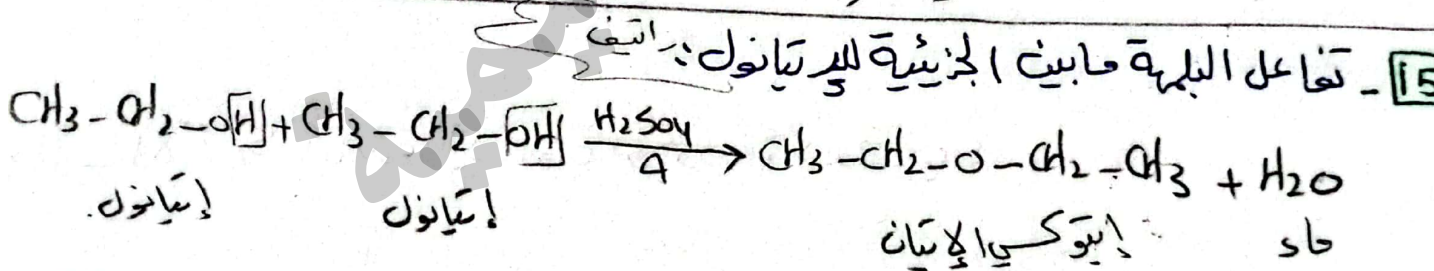 15 - تفاعل البلمهة مابين الجزيئية للإيتانول:
CH3 - CH2 - OH + CH3 - CH2 - OH H2SO4 Δ → CH3 - CH2 - O - CH2 - CH3 + H2O
إيتانول. إيتانول إيتوكسي الإيتان ماء